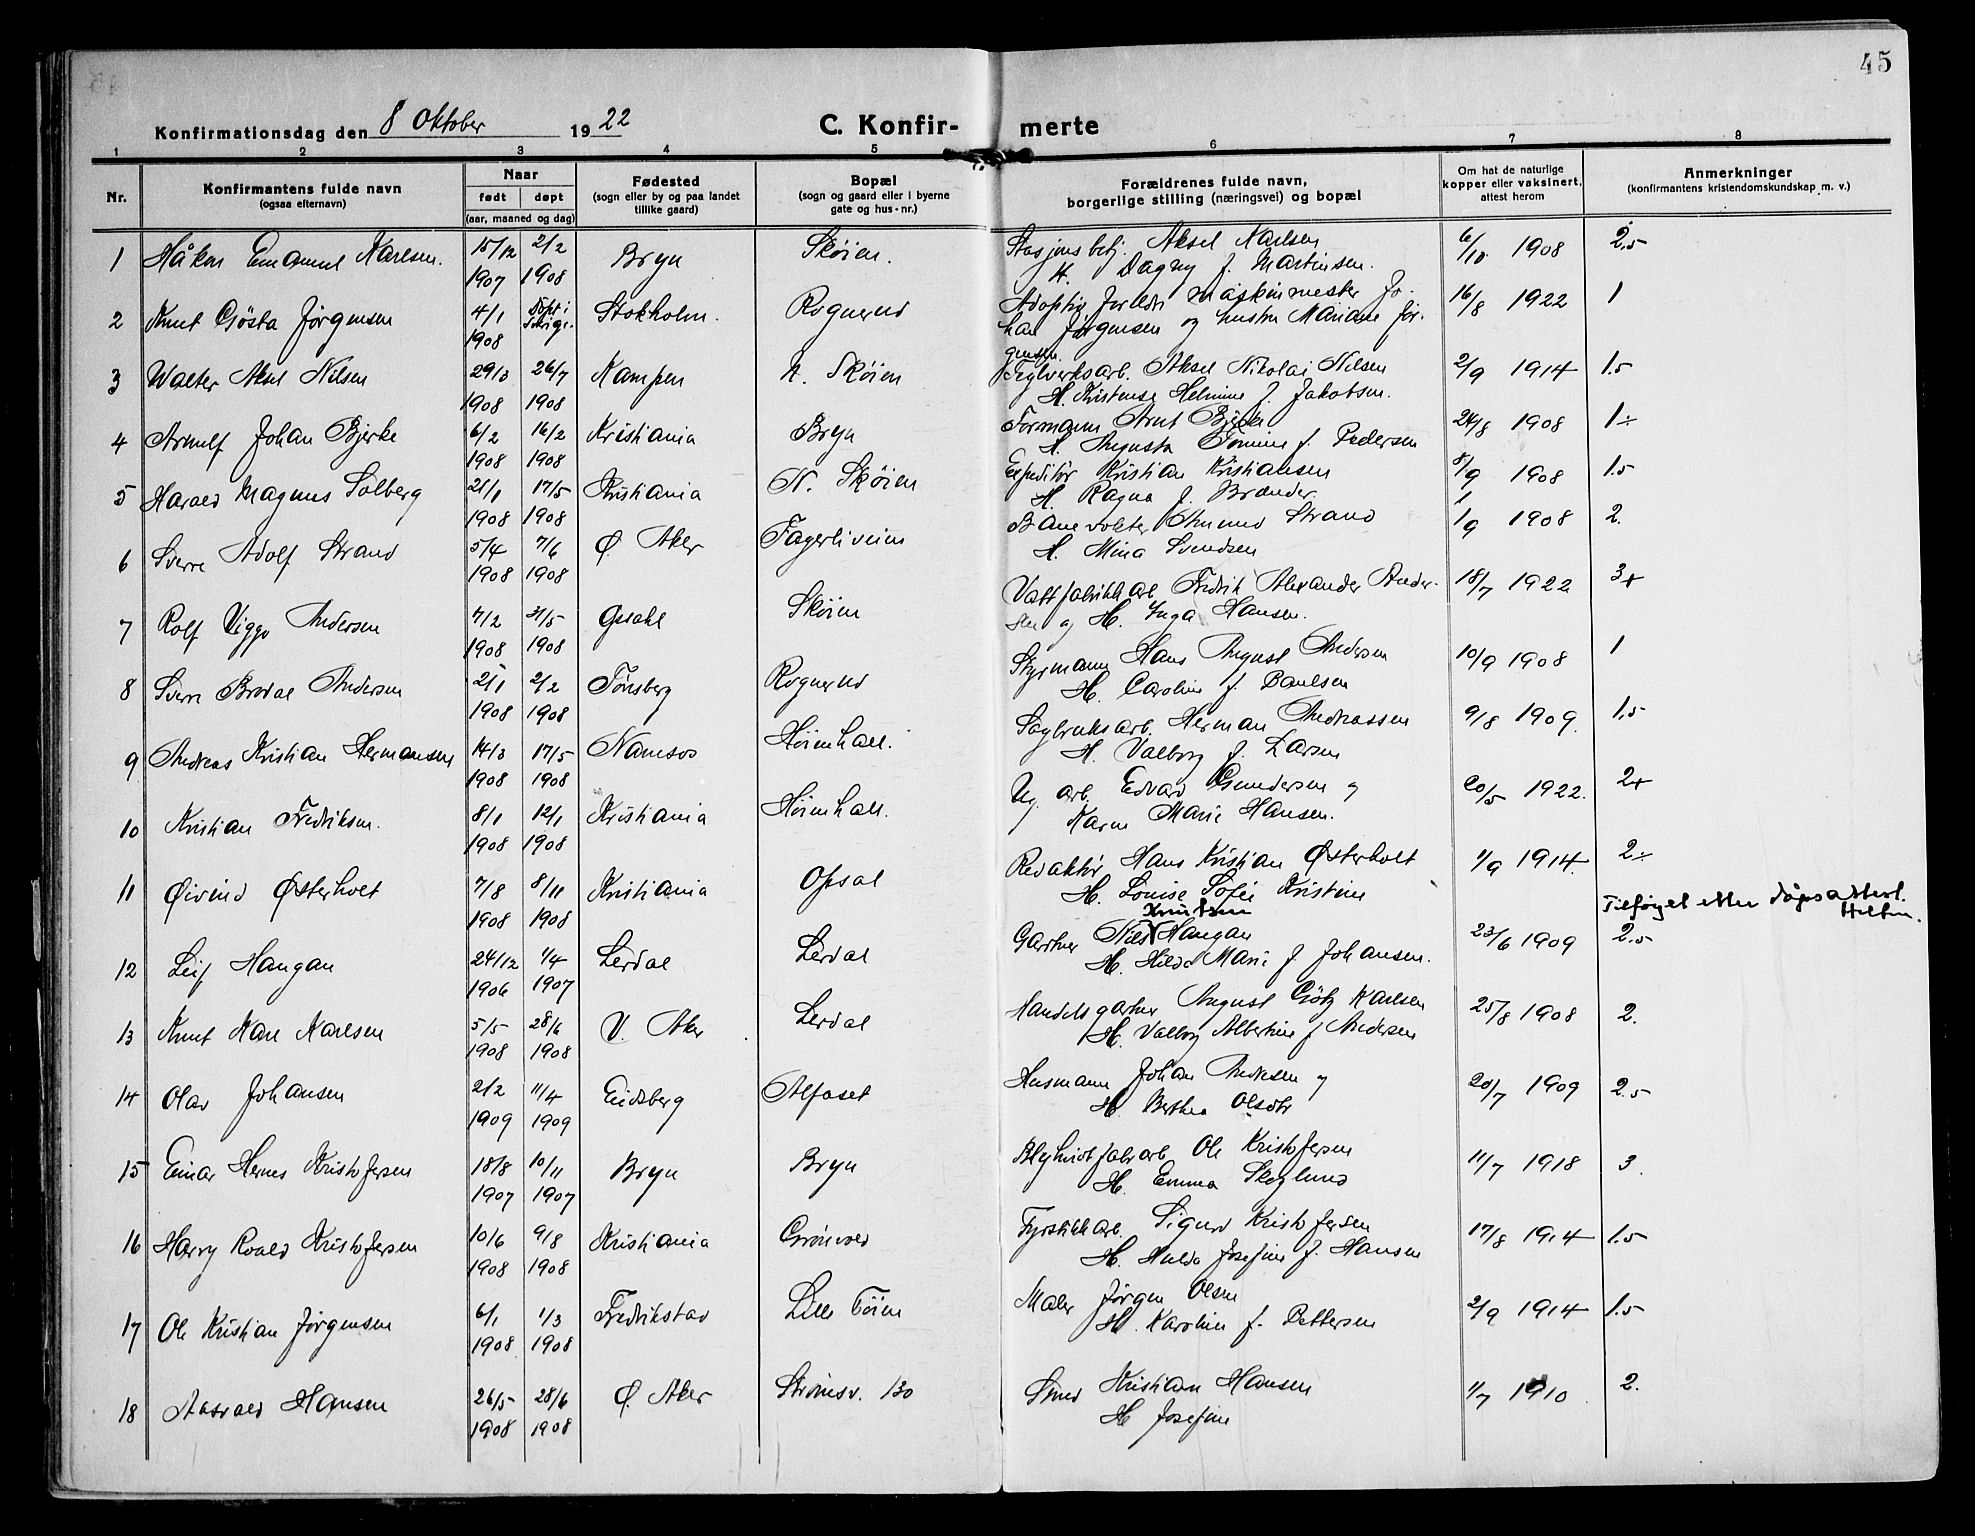 45
Konfirmationsdag den 8 Oktober 1922
C. Konfir- merte
1 2 3 4 5 6 7 8
Nr.
Konfirmantens fulde navn
(ogsaa efternavn)
Naar
født døpt
(aar, maaned og dag)
Fødested
(sogn eller by og paa landet
tillike gaard)
Bopæl
(sogn og gaard eller i byerne
gate og hus-nr.)
Forældrenes fulde navn,
borgerlige stilling (næringsvei) og bopæl
Om hat de naturlige
kopper eller vaksinert,
attest herom
Anmerkninger
(konfirmantens kristendomskundskap m. v.)
1 Håkon Emanuel Karlsen. 15/12 2/2 Bryn Skøien. Stasjonsbetj. Aksel Karlsen 6/10 1908 2.5
1907 1908 H. Dagny f. Martinsen.
2 Knut Gösta Jørgensen 4/1 Døpt i Sverige. Stokholm. Rognerud Adoptiv foreldre maskinmester Jo- 16/8 1922 1
1908 han Jørgensen og hustru Mariane Jør-
gensen.
3 Walter Aksel Nilsen 29/3 26/7 Kampen N. Skøien Teglverksarb. Aksel Nikolai Nilsen 2/9 1914 1.5
1908 1908 H. Kristense Helmine f. Jakobsen.
4 Arnulf Johan Bjerke 6/2 16/2 Kristiania Bryn Formann Arnt Bjerke 24/8 1908 1÷
1908 1908 H. Augusta f. Pedersen
5 Harald Magnus Solberg 21/1 17/5 Kristiania N. Skøien Expeditør Kristian Kristiansen 8/9 1908 1.5
1908 1908 H. Ragna f. Brænder
6 Sverre Adolf Strand 5/4 7/6 Ø. Aker Fagerliveien Banevokter Amund Strand 1/9 1908 2.
1908 1908 H. Mina Svendsen
7 Rolf Viggo Andersen 7/2 31/5 Skøien Vattfabrikkarb. Fredrik Alexander Ander- 18/7 1922 3+
1908 1908 sen og H. Inga Hansen.
8 Sverre Brodal Andersen 2/1 2/2 Tønsberg Rognerud Styrmann Hans August Andersen 10/9 1908 1
1908 1908 H. Caroline f. Paulsen
9 Andreas Kristian Hermansen 14/3 17/5 Namsos Høienhall. Sagbruksarb. Herman Andreassen 9/8 1909. 1.5
1908 1908 H. Valborg f. Larsen
10 Kristian Fredriksen. 8/1 12/1 Kristiania Høienhall. Ug. arb. Edvard Gundersen og 20/5 1922. 2+
1908 1908 Karen Marie Hansen.
11 Øivind Østerholt 7/8 8/11 Kristiania Opsal Redaktør Hans Kristian Østerholt 1/9 1914. 2÷
1908 1908 H. Louise Sofie Kristine
Tilføyet etter dåpsattest.
Knutsen
12 Leif Haugan 24/12 1/4 Lerdal Lerdal Gartner Nils Haugan 23/6 1909 2.5
1906 1907 H. Hilda Marie f. Johansen.
13 Knut Karl Karlsen 5/5 28/6 V. Aker Lerdal Handelsgartner August Götz Karlsen 25/8 1908 2.
1908 1908 H. Valborg Albertine f. Andersen
14 Olav Johansen 2/2 11/4 Eidsberg Alfaset Husmann Johan Andresen og 20/7 1909 2.5
1909 1909 H. Berthea Olsdtr
15 Einar Hernes Kristofersen 18/8 10/11 Bryn Bryn Blyhvitfabarb Ole Kristofersen 11/7 1918 3.
1907 1907 H. Emma Skoglund
16 Harry Roald Kristofersen 10/6 9/8 Kristiania Grönvold Fyrstikkarb. Sigurd Kristofersen 17/8 1914 1.5
1908 1908 H. Hulda Josefine f. Hansen
17 Ole Kristian Jørgensen 6/1 1/3 Fredrikstad Lille Tøien Maler Jørgen Olsen 2/9 1914 1.5
1908 1908 H. Karoline f. Pettersen
18 Aasvald Hansen 26/5 28/6 Ø. Aker Strömsv. 130 Smed Kristian Hansen 1/7 1910 2.
1908 1908 H. Josefine